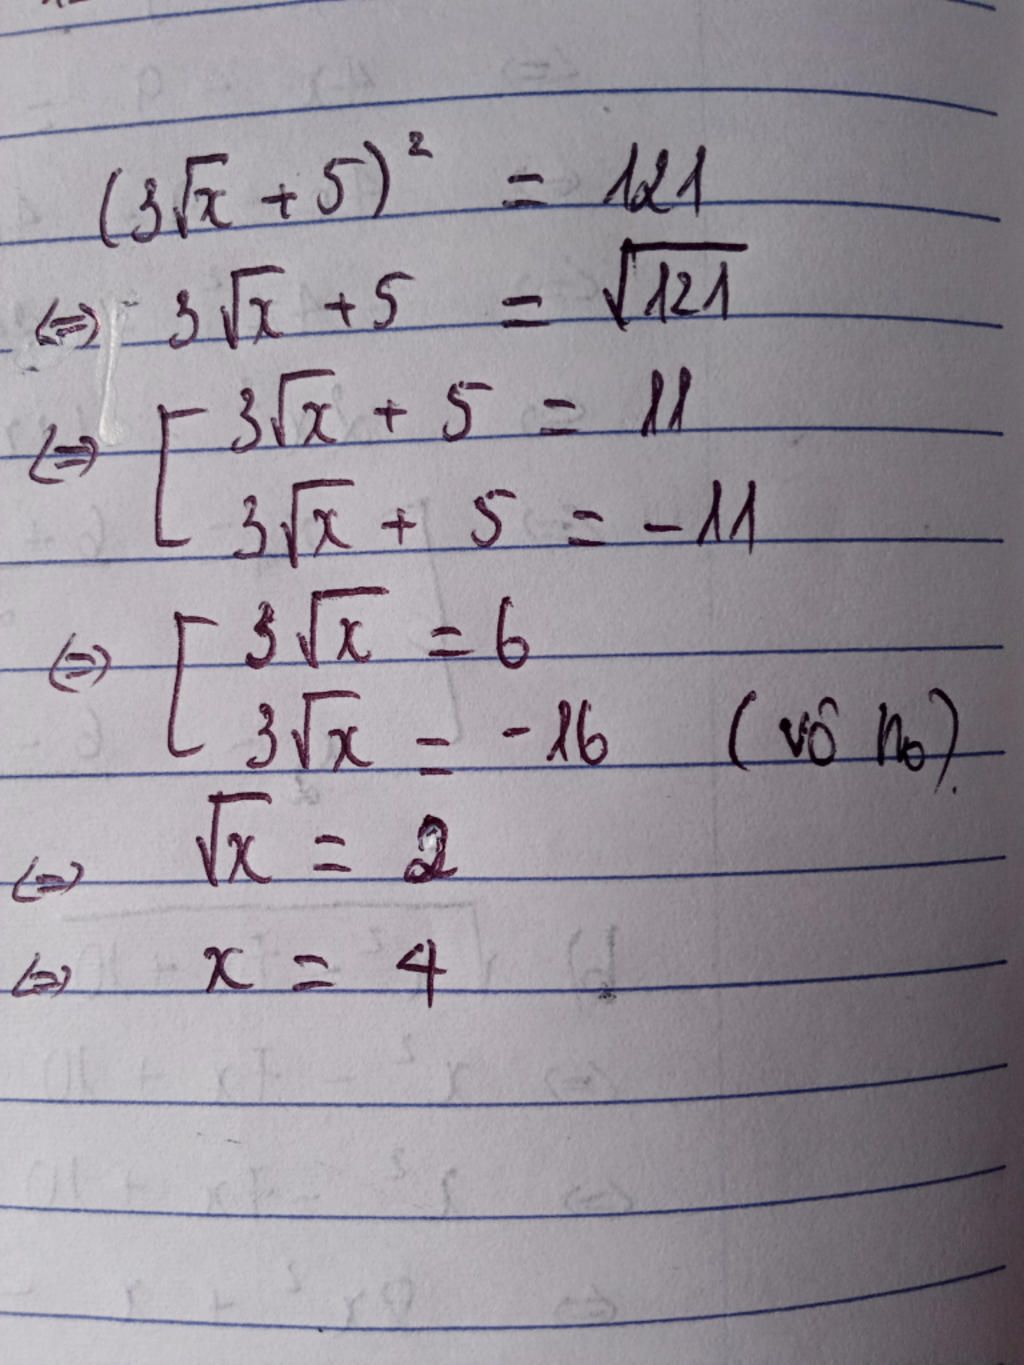 (3√x + 5)² = 121
⇔ 3√x + 5 = √121
⇔ [ 3√x + 5 = 11
3√x + 5 = -11
⇔ [ 3√x = 6
3√x = -16 (vô no).
⇔ √x = 2
⇔ x = 4